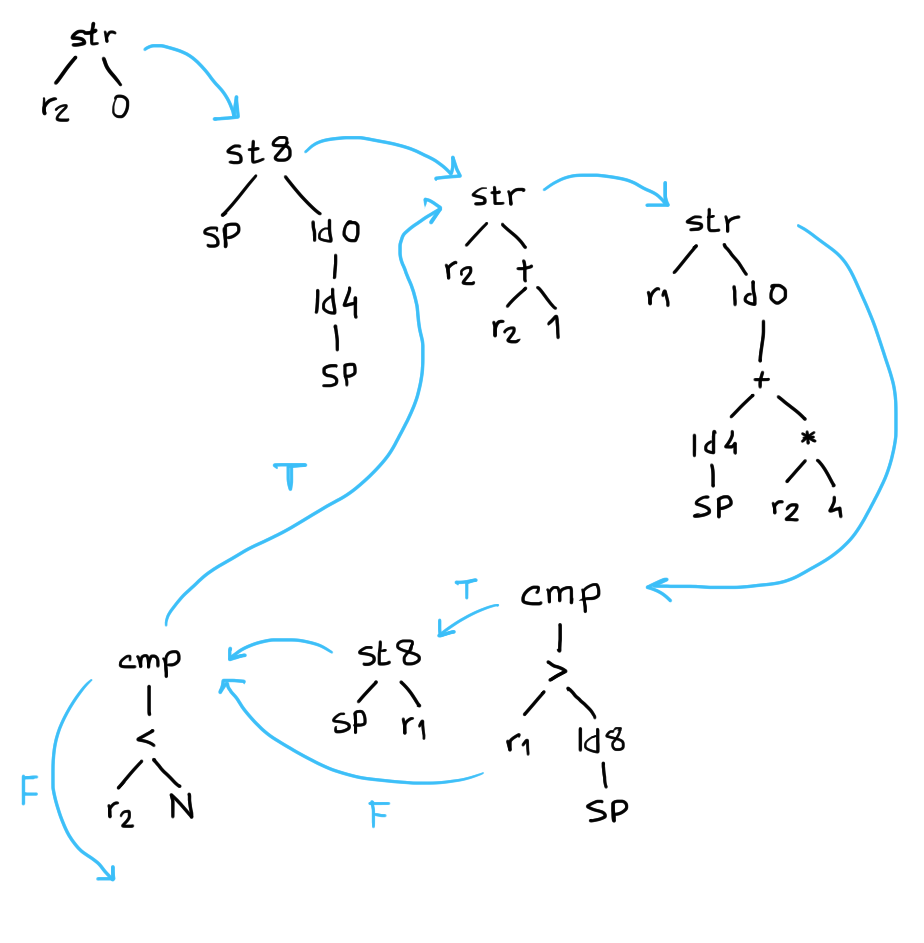 str
r2 0
st8
SP ld0
ld4
SP
str
r2 +
r2 1
str
r1 ld0
+
ld4 *
SP r2 4
T
cmp
>
r1 ld8
SP
F
T
st8
SP r1
cmp
<
r2 N
F